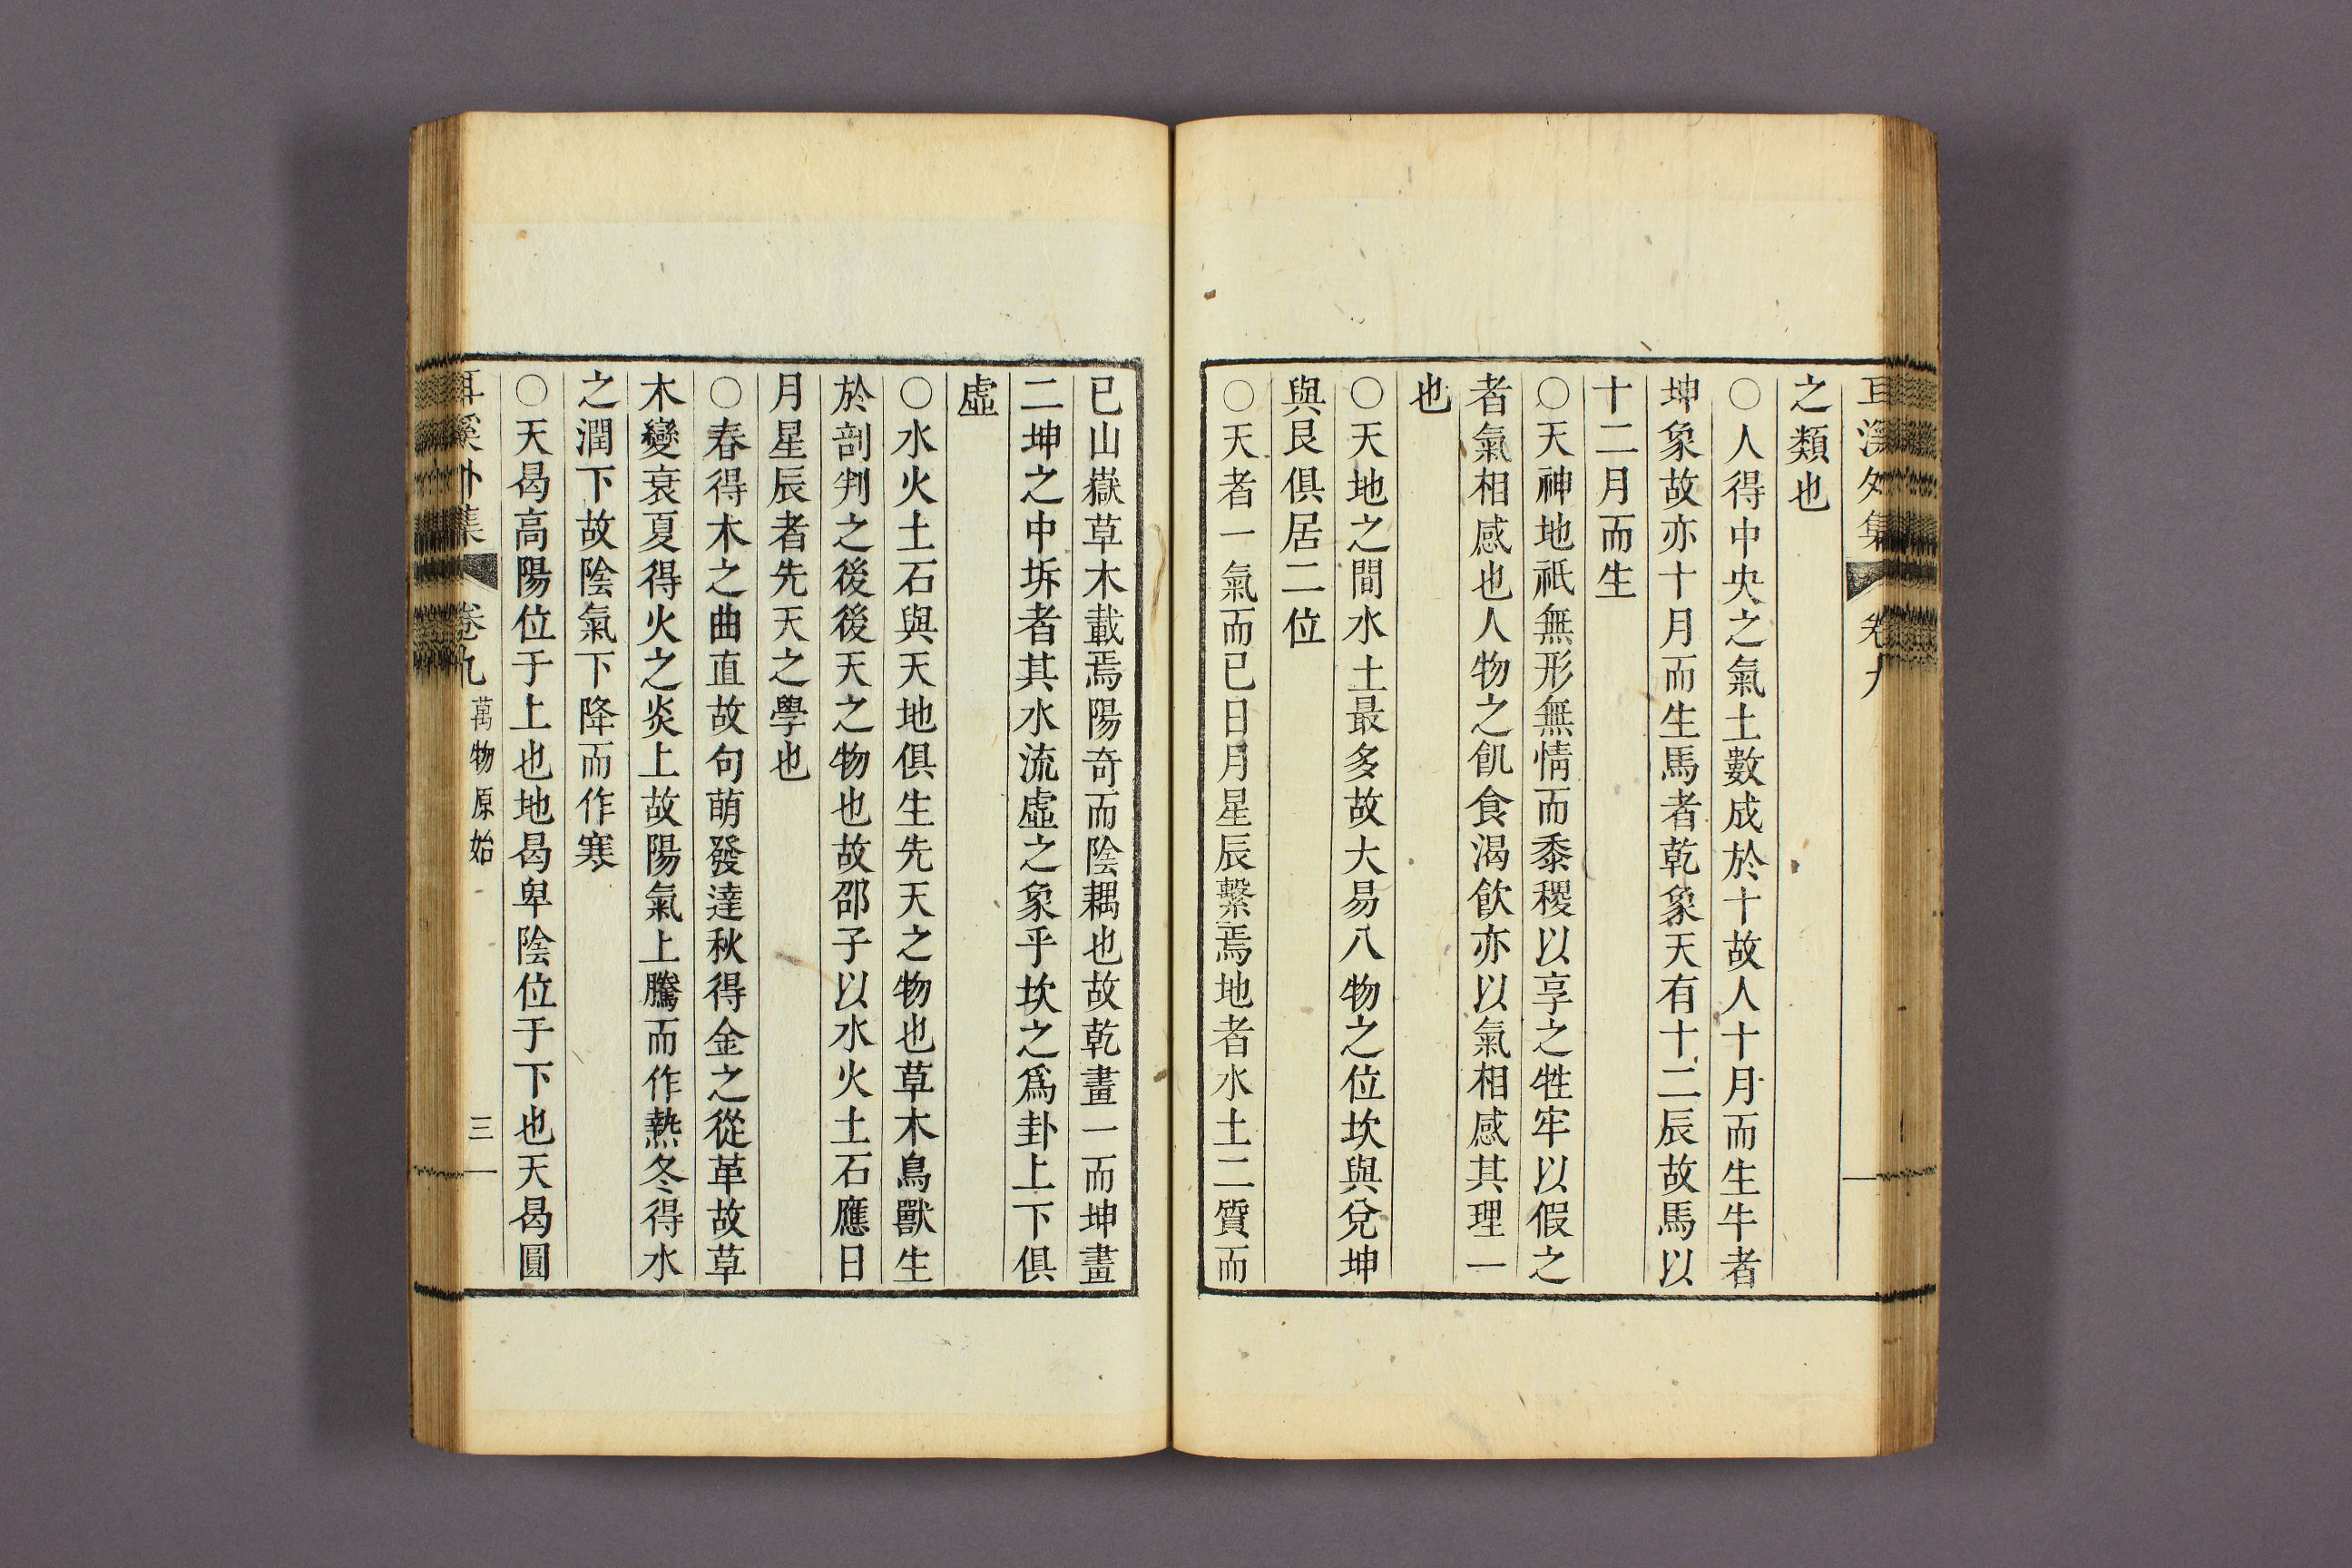 耳溪外集 卷九
之類也
○人得中央之氣土數成於十故人十月而生牛者
坤象故亦十月而生馬者乾象天有十二辰故馬以
十二月而生
○天神地祇無形無情而黍稷以享之牲牢以假之
者氣相感也人物之飢食渴飮亦以氣相感其理一
也
○天地之間水土最多故大易八物之位坎與兌坤
與艮俱居二位
○天者一氣而已日月星辰繫焉地者水土二質而
已山嶽草木載焉陽奇而陰耦也故乾畫一而坤畫
二坤之中坼者其水流虛之象乎坎之爲卦上下俱
虛
○水火土石與天地俱生先天之物也草木鳥獸生
於剖判之後後天之物也故邵子以水火土石應日
月星辰者先天之學也
○春得木之曲直故句萌發達秋得金之從革故草
木變衰夏得火之炎上故陽氣上騰而作熱冬得水
之潤下故陰氣下降而作寒
○天曷高陽位于上也地曷卑陰位于下也天曷圓
耳溪外集 卷九 萬物原始 三